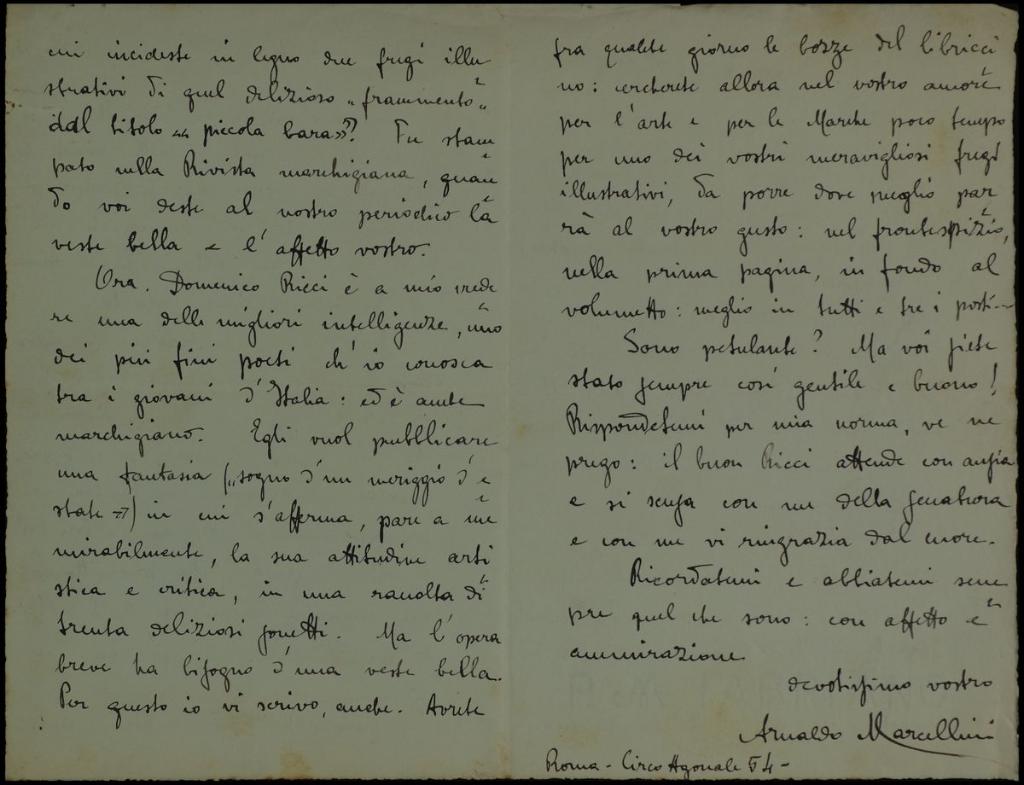 cui incideste in legno due fregi illu
strativi di quel delizioso „frammento„
dal titolo «« piccola bara»»? Fu stam
pato nella Rivista marchigiana, quan
do voi deste al nostro periodico la
veste bella e l'affetto vostro.
Ora. Domenico Ricci è a mio crede
re una delle migliori intelligenze, uno
dei più fini poeti ch'io conosca
tra i giovani d'Italia: ed è anche
marchigiano. Egli vuol pubblicare
una fantasia („sogno d'un meriggio d'e
state »») in cui s'afferma, pare a me
mirabilmente, la sua attitudine arti
stica e critica, in una raccolta di
trenta deliziosi sonetti. Ma l'opera
breve ha bisogno d'una veste bella.
Per questo io vi scrivo, anche. Avrete
fra qualche giorno le bozze del libricci
no: cercherete allora nel vostro amore
per l'arte e per le Marche poco tempo
per uno dei vostri meravigliosi fregi
illustrativi, da porre dove meglio par
rà al vostro gusto: nel frontespizio,
nella prima pagina, in fondo al
volumetto: meglio in tutti e tre i posti.—
Sono petulante? Ma voi siete
stato sempre così gentile e buono!
Rispondetemi per mia norma, ve ne
prego: il buon Ricci attende con ansia
e si scusa con me della seccatura
e con me vi ringrazia dal cuore.
Ricordatemi e abbiatemi sem
pre quel che sono: con affetto e
ammirazione
devotissimo vostro
Arnaldo Marcellini
Roma - Circo Agonale 54 -